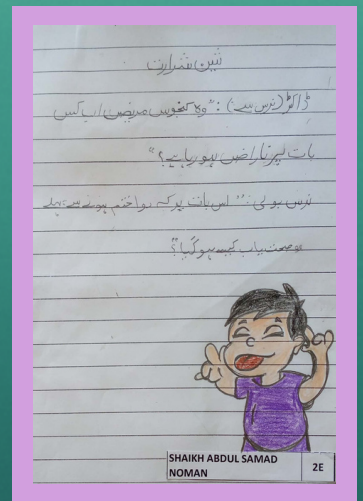 شین شرارت
ڈاکٹر (نرس سے): "وہ کنجوس مریض اب کس
بات پر ناراض ہو رہا ہے؟"
نرس بولی: "اس بات پر کہ دوا ختم ہونے سے پہلے
وہ صحت یاب کیسے ہو گیا؟
SHAIKH ABDUL SAMAD
NOMAN
2E